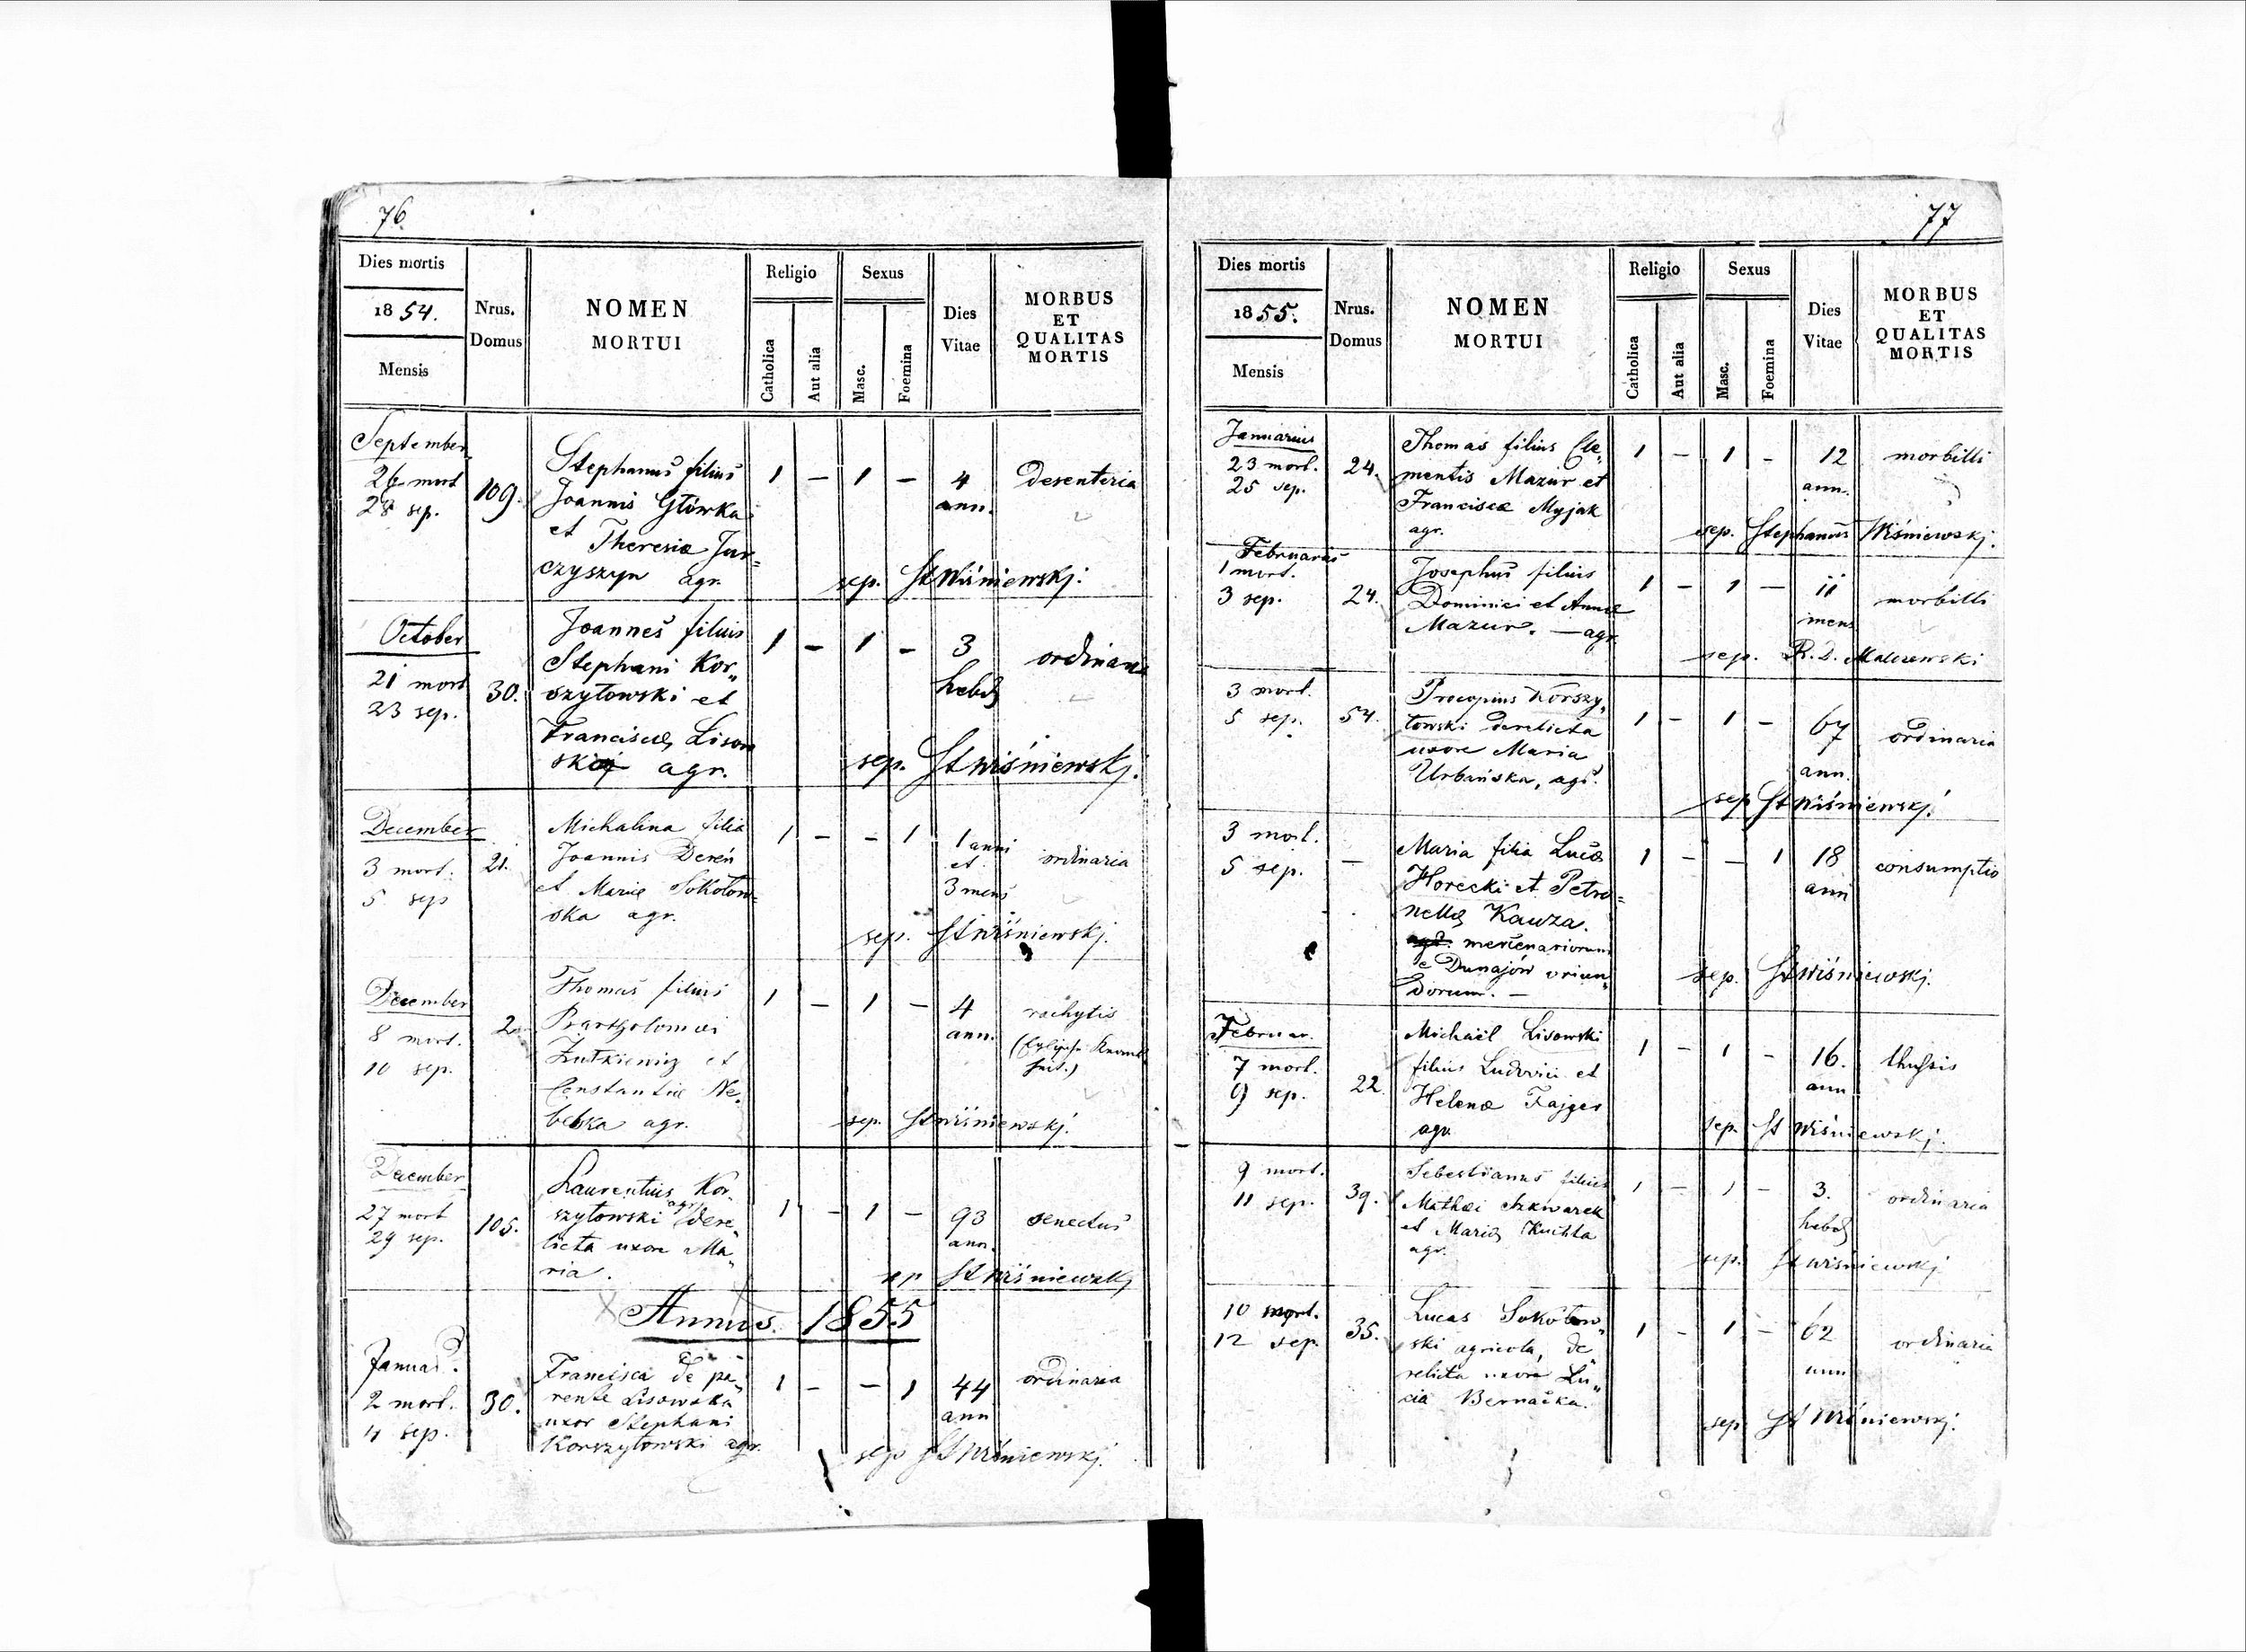 76.
Dies mortis
1854.
Mensis
Nrus.
Domus
NOMEN
MORTUI
Religio
Catholica
Aut alia
Sexus
Masc.
Foemina
Dies
Vitae
MORBUS
ET
QUALITAS
MORTIS
September
26 mort
28 sep.
109.
Stephanus filius
Joannis Główka
et Theresiæ Jur=
czyszyn agr.
1 — 1 —
4
ann.
desenteria
sep. St Wiśniewskj.
October
21 mort
23 sep.
30.
Joannes filius
Stephani Kor„
szyłowski et
Franciscæ Lisow
ski agr.
1 — 1 —
3
hebd
ordinaria
sep. St Wiśniewskj.
December
3 mort.
5 sep
21.
Michalina filia
Joannis Dereń
et Mariæ Sokołow=
ska agr.
1 — — 1
1 anni
et
3 mens
ordinaria
sep. St Wiśniewskj.
December
8 mort.
10 sep.
2.
Thomas filius
Bartholomæi
Żutkiewicz et
Constantiæ Ne„
bebska agr.
1 — 1 —
4
ann.
rachytis
sep. St Wiśniewskj.
December
27 mort
29 sep.
105.
Laurentius Kor„
szyłowski agr. dere„
licta uxore Ma„
ria.
1 — 1 —
93
ann.
senectus
sep St Wiśniewskj
Annus 1855
Januar.
2 mort.
4 sep.
30.
Francisca de pa„
rente Lisowska
uxor Stephani
Korszyłowski agr.
1 — — 1
44
ann
ordinaria
sep St Wiśniewskj.
77
Dies mortis
1855.
Mensis
Nrus.
Domus
NOMEN
MORTUI
Religio
Catholica
Aut alia
Sexus
Masc.
Foemina
Dies
Vitae
MORBUS
ET
QUALITAS
MORTIS
Januarius
23 mort.
25 sep.
24.
Thomas filius Cle„
mentis Mazur et
Franciscæ Myjak
agr.
1 — 1 —
12
ann.
morbilli
sep. Stephanus Wiśniewskj.
Februarius
1 mort.
3 sep.
24.
Josephus filius
Dominici et Annæ
Mazur. — agr.
1 — 1 —
11
mens
morbilli
sep. R. D. Malczewski
3 mort.
5 sep.
54.
Procopius Korszy„
łowski derelicta
uxore Maria
Urbańska, agr.
1 — 1 —
67
ann.
ordinaria
sep St Wiśniewskj.
3 mort.
5 sep.
—
Maria filia Lucæ
Horecki et Petro=
nellæ Kauza.
agr. mercenariorum
e Dunajów oriun„
dorum. —
1 — — 1
18
ann
consumptio
sep. St Wiśniewskj.
Februar.
7 mort.
9 sep.
22
Michaël Lisowski
filius Ludovici et
Helenæ Fajger
agr.
1 — 1 —
16.
ann
sep. St Wiśniewskj.
9 mort.
11 sep.
39.
Sebestianus filius
Mathæi Szkwarek
et Mariæ Kuchta
agr.
1 — 1 —
3.
hebd
ordinaria
sep. St Wiśniewskj
10 mort.
12 sep.
35.
Lucas Sokołow„
ski agricola, de„
relicta uxore Lu„
cia Bernacka.
1 — 1 —
62
ann
ordinaria
sep St Wiśniewskj.